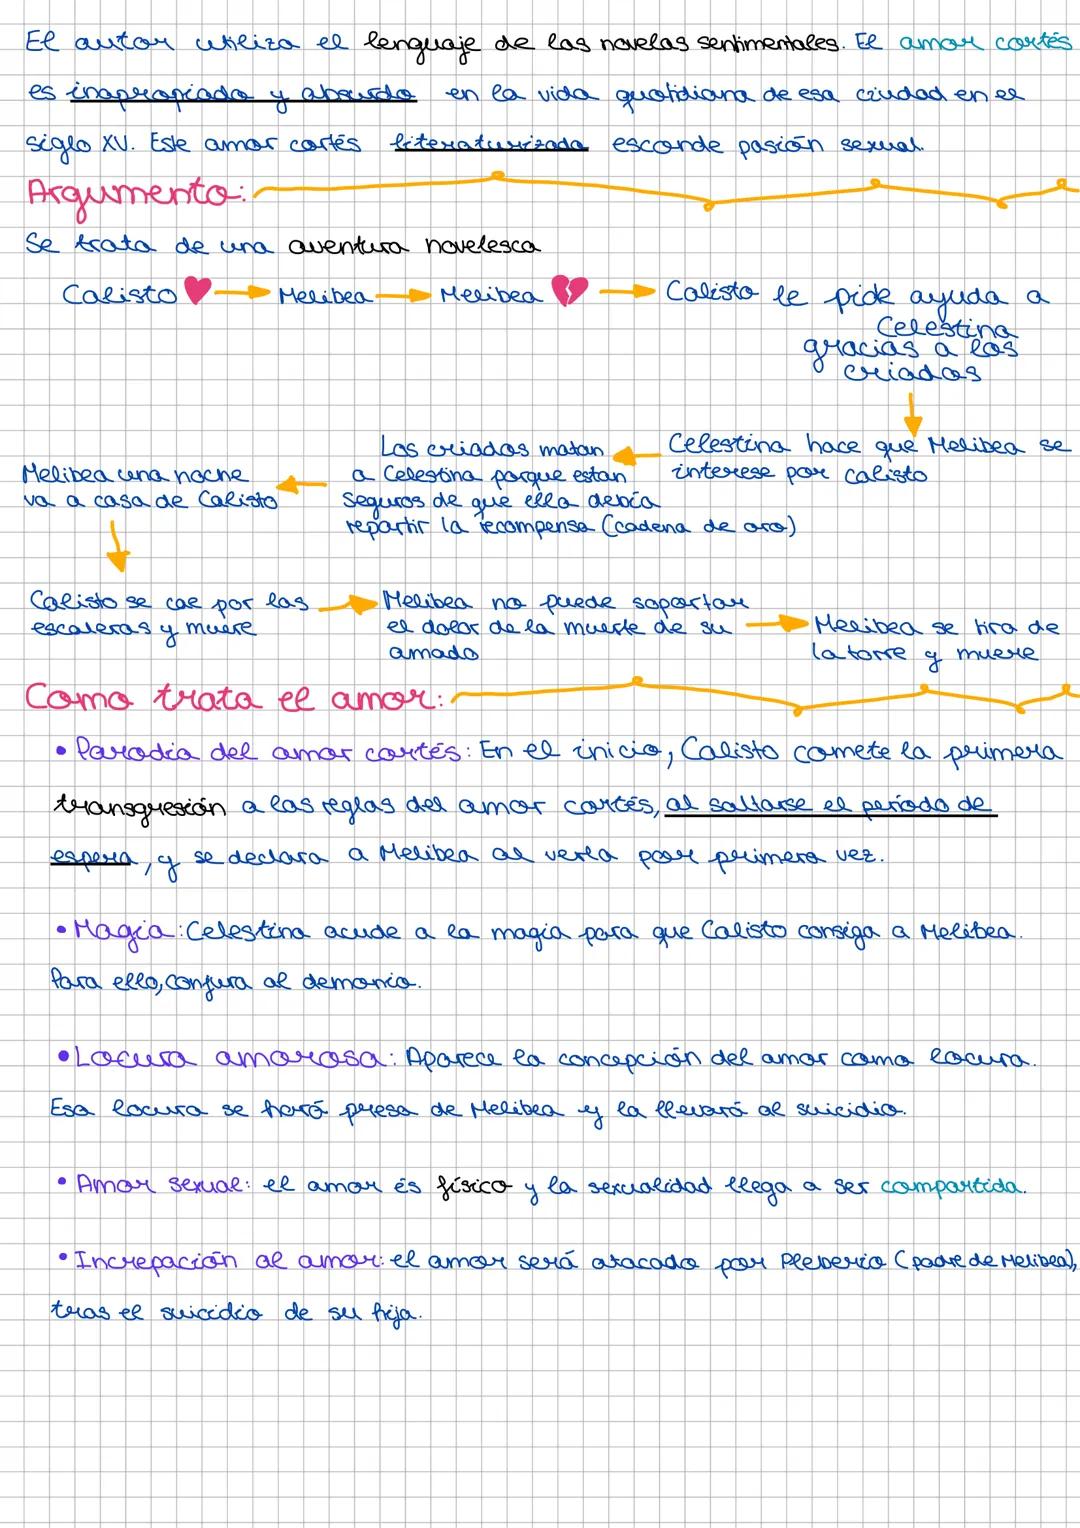 El autor utiliza el lenguaje de las novelas sentimentales. El amor cortés
es inapropiado y absurdo en la vida quotidiana de esa ciudad en el
siglo XV. Este amor cortés literaturizado esconde pasión sexual.
Argumento:
Se trata de una aventura novelesca
Calisto Melibea Melibea Calisto le pide ayuda a
Celestina
gracias a los
criados
Celestina hace que Melibea se
interese por Calisto
Los criados matan
a Celestina porque estan
seguros de que ella devia
repartir la recompensa (cadena de oro)
Melibea una noche
va a casa de Calisto
Calisto se cae por las
escaleras y muere
Melibea no puede soportar
el dolor de la muerte de su
amado
Melibea se tira de
la torre y muere
Como trata el amor:
• Parodia del amor cortés: En el inicio, Calisto comete la primera
transgresión a las reglas del amor cortés, al saltarse el período de
espera, y se declara a Melibea al verla poor primera vez.
• Magia: Celestina acude a la magia para que Calisto consiga a Melibea.
Para ello, conjura al demonio.
• Locura amorosa: Aparece la concepción del amor como locura.
Esa locura se hará presa de Melibea y la llevará al suicidio.
• Amor sexual: el amor és físico y la sexualidad llega a ser compartida.
• Increpación al amor: el amor será atacado por Pleberio (padre de Melibea),
tras el suicidio de su hija.